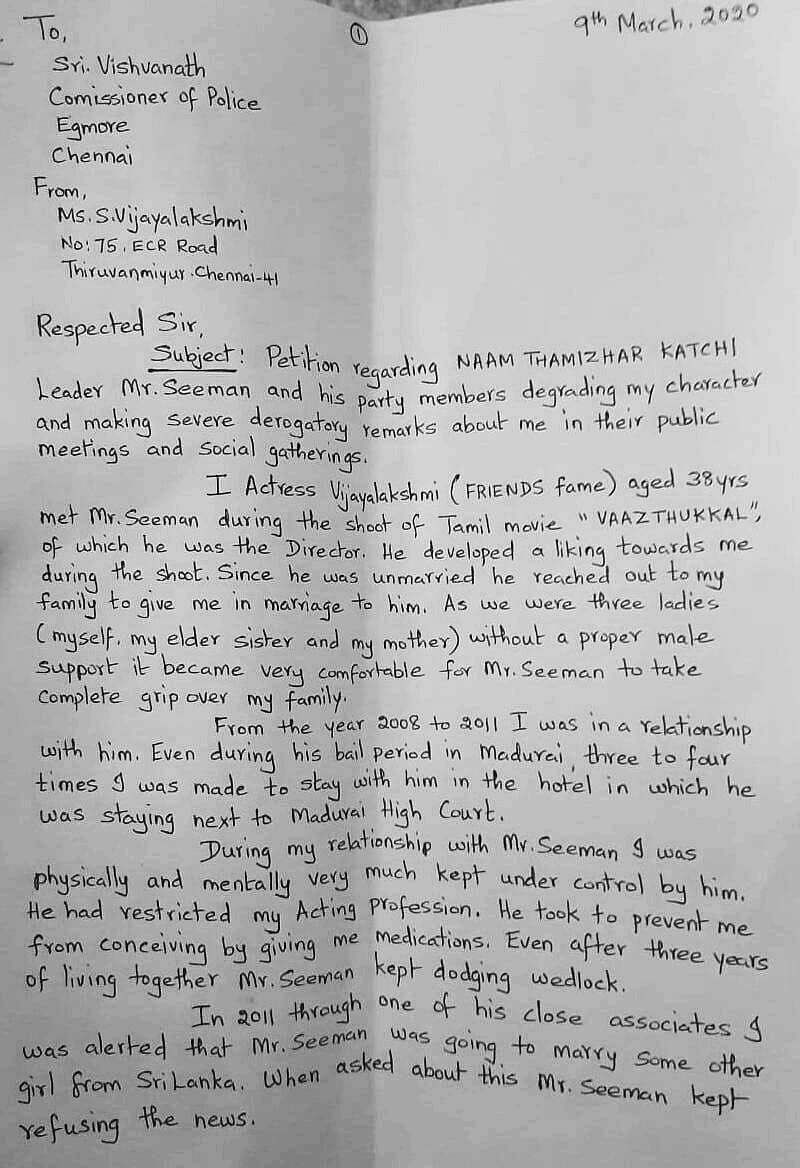 ①
9th March, 2020
To,
Sri. Vishvanath
Comissioner of Police
Egmore
Chennai
From,
Ms. S. Vijayalakshmi
No: 75, ECR Road
Thiruvanmiyur. Chennai-41
Respected Sir,
Subject: Petition regarding NAAM THAMIZHAR KATCHI
Leader Mr. Seeman and his party members degrading my character
and making severe derogatory remarks about me in their public
meetings and social gatherings.
I Actress Vijayalakshmi (FRIENDS fame) aged 38yrs
met Mr. Seeman during the shoot of Tamil movie "VAAZTHUKKAL",
of which he was the Director. He developed a liking towards me
during the shoot. Since he was unmarried he reached out to my
family to give me in marriage to him. As we were three ladies
(myself, my elder sister and my mother) without a proper male
support it became very comfortable for Mr. Seeman to take
complete grip over my family.
From the year 2008 to 2011 I was in a relationship
with him. Even during his bail period in Madurai, three to four
times I was made to stay with him in the hotel in which he
was staying next to Madurai High Court.
During my relationship with Mr. Seeman I was
physically and mentally very much kept under control by him.
He had restricted my Acting profession. He took to prevent me
from conceiving by giving me medications. Even after three years
of living together Mr. Seeman kept dodging wedlock.
In 2011 through one of his close associates I
was alerted that Mr. Seeman was going to marry some other
girl from SriLanka. When asked about this Mr. Seeman kept
refusing the news.